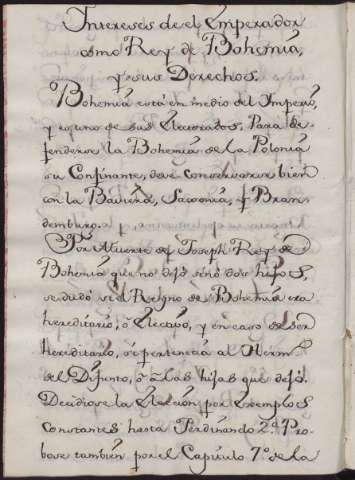 Intereses de el Emperador
como Rey de Bohemia,
y sus Derechos.
Bohemia está en medio del Imperio,
y es uno de sus Electorados. Para de-
fenderse la Bohemia de la Polonia
su Confinante, deve conservarse bien
con la Baviera, Saxonia, y Bran
demburgo.
Por Muerte de Joseph Rey de
Bohemia que no dejó sino dos hijas,
se dudó si el Reyno de Bohemia era
hereditario, ó Electivo, y en caso de ser
hereditario, si pertenecia al Herm.º
del Difunto, ó á las hijas que dejó.
Decidiose la Eleccion por Exemplos
Constantes hasta Ferdinando 2.º Pro-
base tambien por el Capitulo 7.º de la